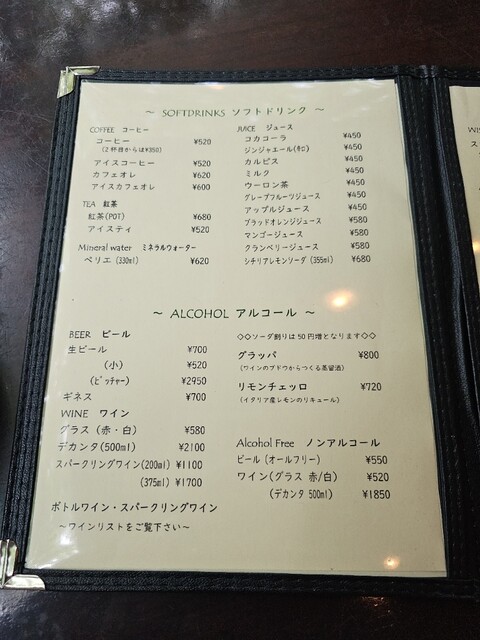 ～ SOFTDRINKS ソフトドリンク ～
COFFEE コーヒー
コーヒー ¥520
(2杯目からは¥350)
アイスコーヒー ¥520
カフェオレ ¥620
アイスカフェオレ ¥600
TEA 紅茶
紅茶(POT) ¥680
アイスティ ¥520
Mineral water ミネラルウォーター
ペリエ (330ml) ¥620
JUICE ジュース
コカコーラ ¥450
ジンジャエール(辛口) ¥450
カルピス ¥450
ミルク ¥450
ウーロン茶 ¥450
グレープフルーツジュース ¥450
アップルジュース ¥450
ブラッドオレンジジュース ¥580
マンゴージュース ¥580
クランベリージュース ¥580
シチリアレモンソーダ (355ml) ¥680
～ ALCOHOL アルコール ～
BEER ビール
生ビール ¥700
(小) ¥520
(ピッチャー) ¥2950
ギネス ¥700
WINE ワイン
グラス (赤・白) ¥580
デカンタ(500ml) ¥2100
スパークリングワイン(200ml) ¥1100
(375ml) ¥1700
ボトルワイン・スパークリングワイン
～ワインリストをご覧下さい～
◇◇ソーダ割りは50円増となります◇◇
グラッパ ¥800
(ワインのブドウからつくる蒸留酒)
リモンチェッロ ¥720
(イタリア産レモンのリキュール)
Alcohol Free ノンアルコール
ビール (オールフリー) ¥550
ワイン(グラス 赤/白) ¥520
(デカンタ 500ml) ¥1850
WIS
ス